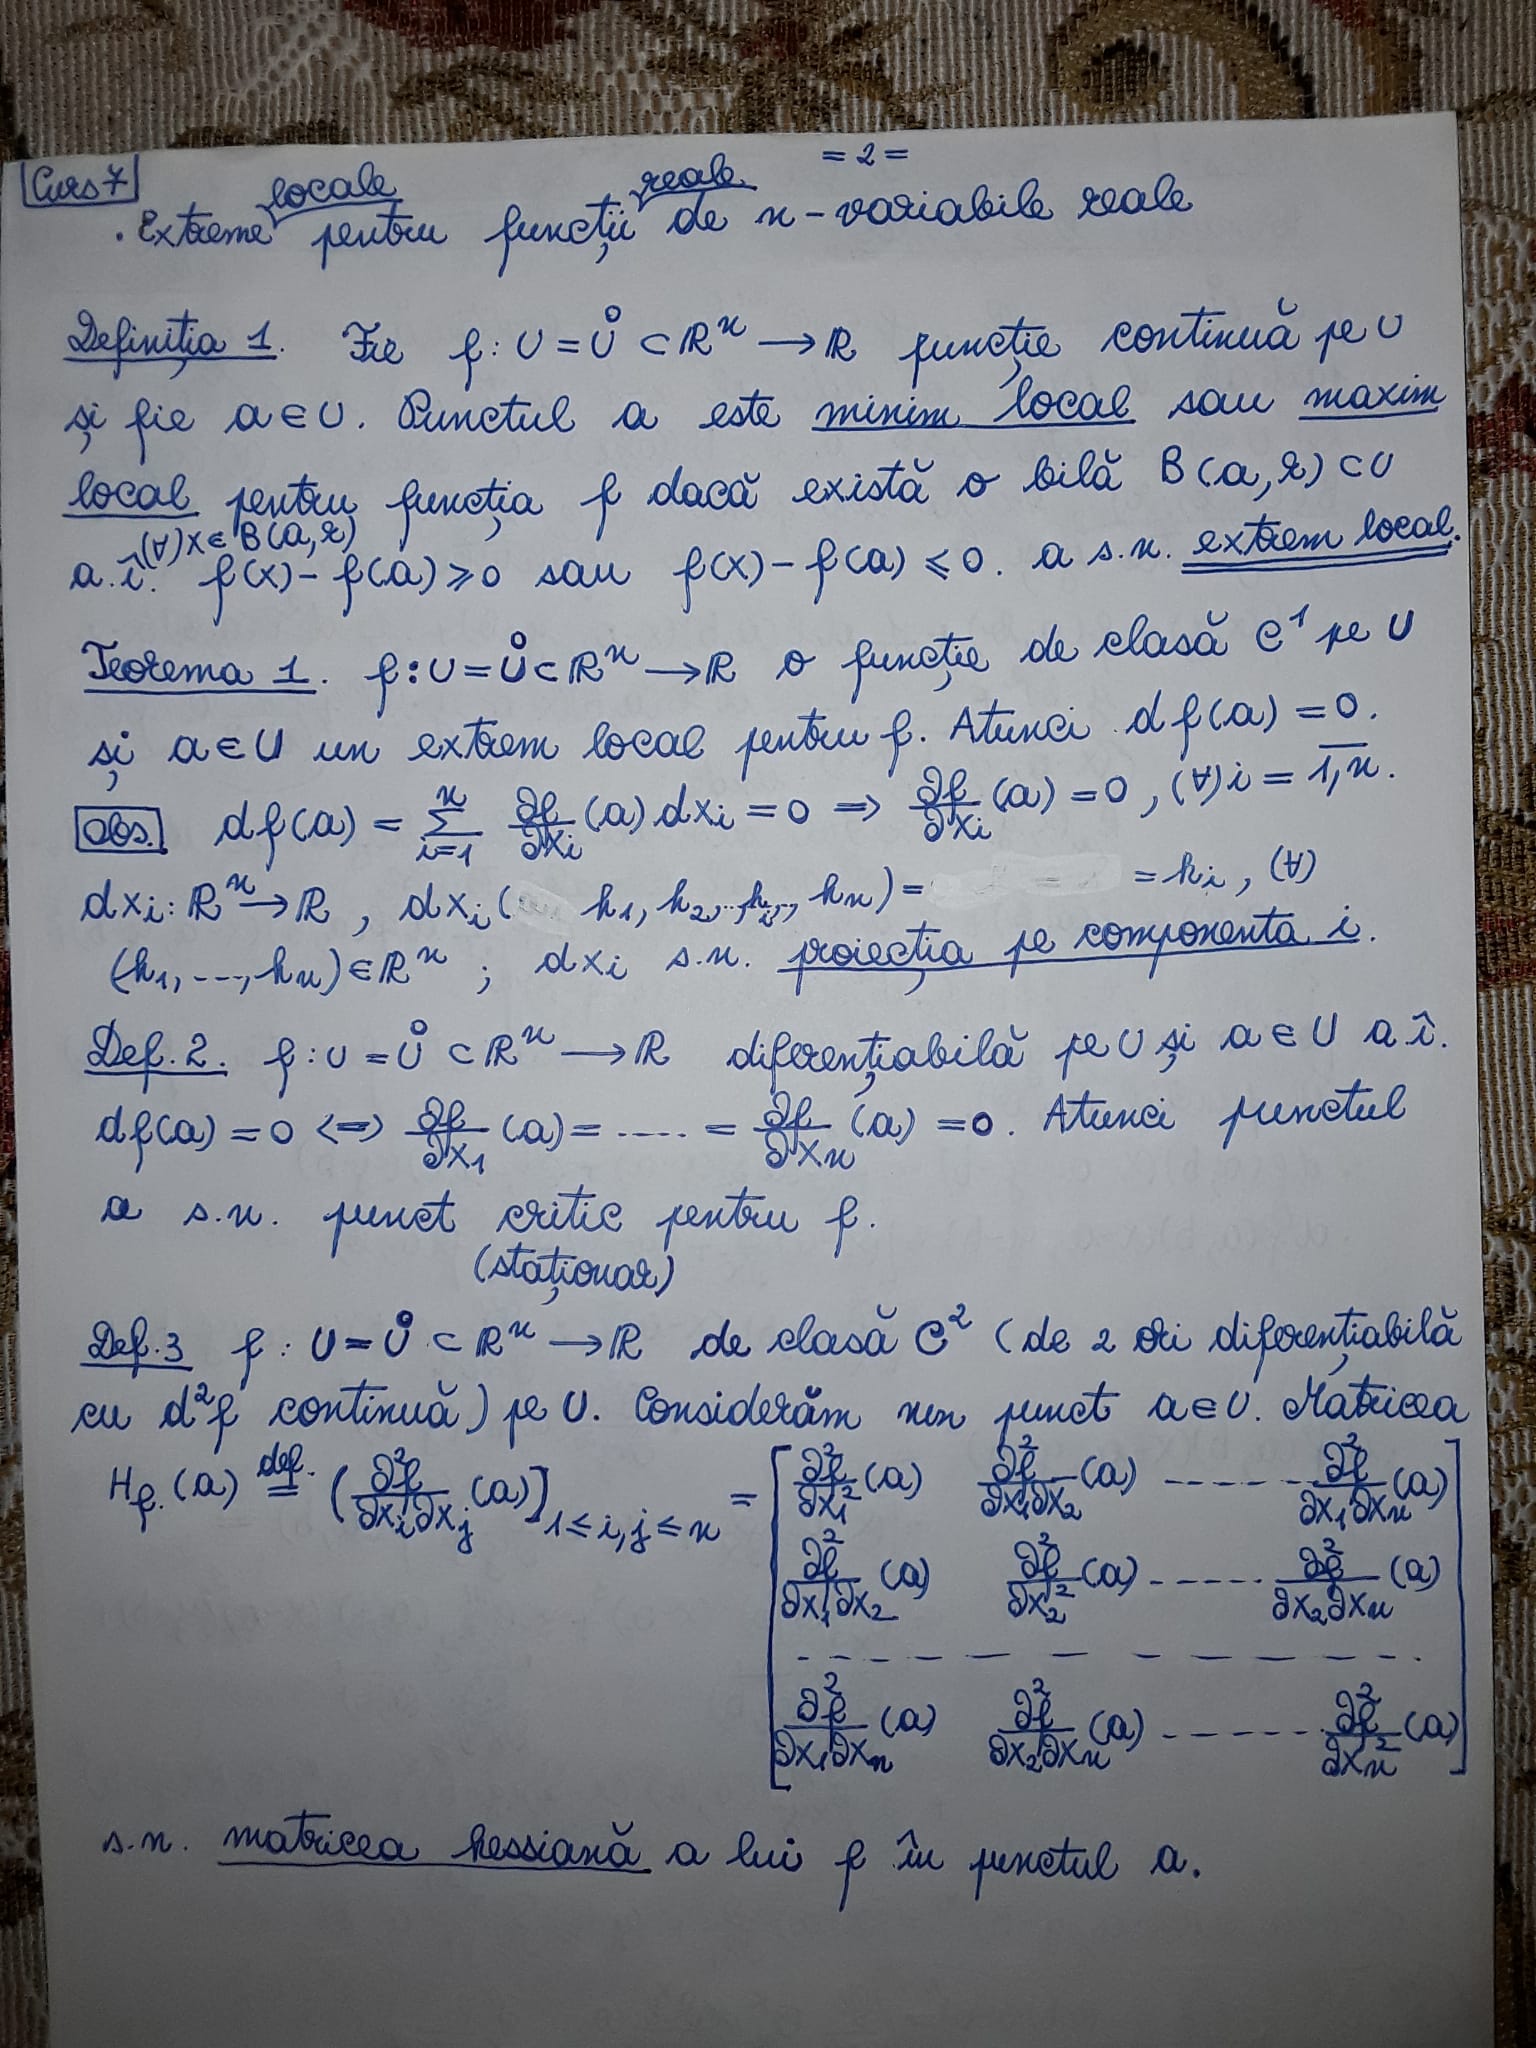 = 2 =
Curs 7
locale reale
. Extreme pentru funcții de n-variabile reale
Definiția 1. Fie f : U = Ů ⊂ ℝⁿ → ℝ funcție continuă pe U
și fie a ∈ U. Punctul a este minim local sau maxim
local pentru funcția f dacă există o bilă B(a, r) ⊂ U
(∀) x ∈ B(a, r)
a.î. f(x) - f(a) ⩾ 0 sau f(x) - f(a) ⩽ 0. a s.n. extrem local.
Teorema 1. f : U = Ů ⊂ ℝⁿ → ℝ o funcție de clasă C¹ pe U
și a ∈ U un extrem local pentru f. Atunci df(a) = 0.
Obs. df(a) = ∑_{i=1}^{n} ∂f/∂xᵢ (a) dxᵢ = 0 ⇒ ∂f/∂xᵢ (a) = 0, (∀) i = 1,n̅.
dxᵢ : ℝⁿ → ℝ, dxᵢ ( h₁, h₂, ..., hᵢ, .., hₙ) = = hᵢ, (∀)
(h₁, ..., hₙ) ∈ ℝⁿ ; dxᵢ s.n. proiecția pe componenta i.
Def. 2. f : U = Ů ⊂ ℝⁿ → ℝ diferențiabilă pe U și a ∈ U a.î.
df(a) = 0 <=> ∂f/∂x₁ (a) = ..... = ∂f/∂xₙ (a) = 0. Atunci punctul
a s.n. punct critic pentru f.
(staționar)
Def. 3 f : U = Ů ⊂ ℝⁿ → ℝ de clasă C² (de 2 ori diferențiabilă
cu d²f continuă) pe U. Considerăm un punct a ∈ U. Matricea
H_f (a) =^{def.} (∂²f/∂xᵢ∂xⱼ (a)]_{1≤i,j≤n} = [ ∂²f/∂x₁² (a) ∂²f/∂x₁∂x₂ (a) ------ ∂²f/∂x₁∂xₙ (a)
∂²f/∂x₁∂x₂ (a) ∂²f/∂x₂² (a) ------ ∂²f/∂x₂∂xₙ (a)
- - - - - - - - - - - - - -
∂²f/∂x₁∂xₙ (a) ∂²f/∂x₂∂xₙ (a) ------ ∂²f/∂xₙ² (a) ]
s.n. matricea hessiană a lui f în punctul a.